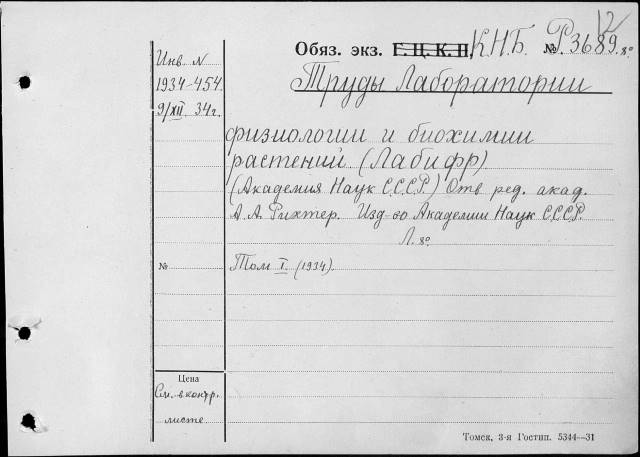 12
Обяз. экз. Г. Ц. К. П. К.Н.Б. № Р.3689. 8º
Инв. N
1934-454
9/XII. 34 г.
Труды Лаборатории
физиологии и биохимии
растений (Лабифр)
(Академия Наук С.С.С.Р.) Отв. ред. акад.
А. А. Рихтер. Изд-во Академии Наук С.С.С.Р.
Л. 8º.
№ Том I. (1934).
Цена
См. в контр.
листе
Томск, 3-я Гостип. 5344—31